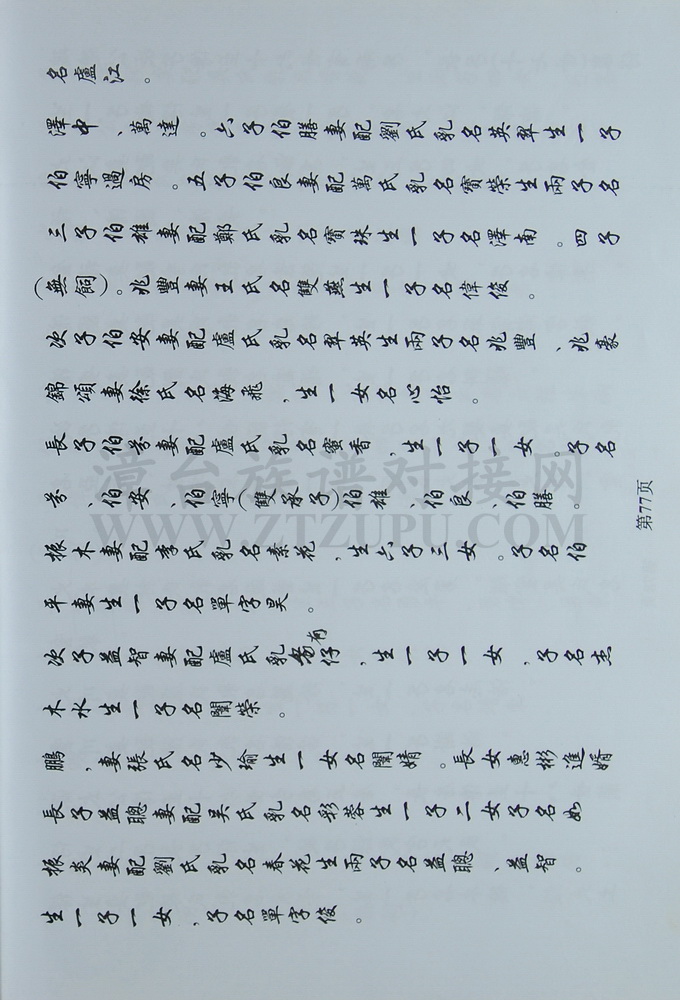 生一子一女,子名單字俊。
振炎妻配劉氏乳名春花生兩子名益聰、益智。
長子益聰妻配吳氏乳名彩蓉生一子二女子名如
鵬,妻張氏名少瑜生一女名闈婧。長女惠彬進婿
木水生一子名闈榮。
次子益智妻配盧氏乳名有仔,生一子一女,子名杰
平妻生一子名單字昊。
振木妻配李氏乳名素花,生六子三女。子名伯
芬、伯安、伯寧(雙承子)伯雄、伯良、伯膳。
長子伯芬妻配盧氏乳名蜜香,生一子一女。子名
錦頌妻徐氏名海飛,生一女名心怡。
次子伯安妻配盧氏乳名翠英生兩子名兆豐、兆豪
(無飼)。兆豐妻王氏名雙燕生一子名偉俊。
三子伯雄妻配鄭氏乳名寶珠生一子名澤南。四子
伯寧過房。五子伯良妻配萬氏乳名寶榮生兩子名
澤中、萬達。六子伯膳妻配劉氏乳名英翠生一子
名盧江。
第77页
漳台族谱对接网
WWW.ZTZUPU.COM